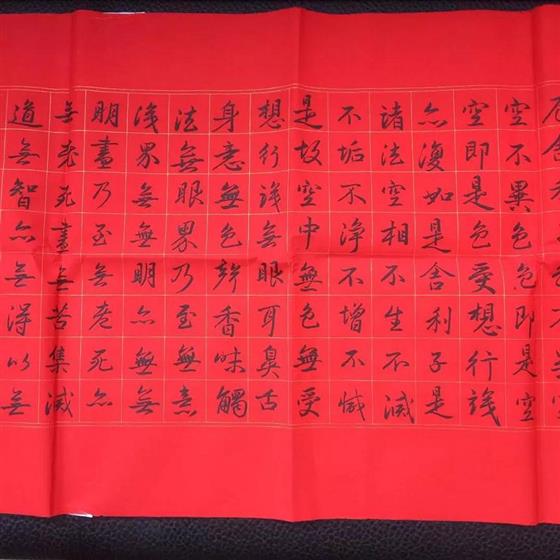 空不異色色即是空
空即是色受想行識
亦復如是舍利子是
諸法空相不生不滅
不垢不淨不增不減
是故空中無色無受
想行識無眼耳鼻舌
身意無色聲香味觸
法無眼界乃至無意
識界無無明亦無無
明盡乃至無老死亦
無老死盡無苦集滅
道無智亦無得以無